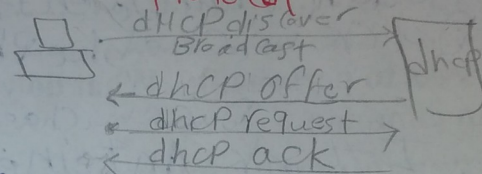 dHCP discover
Broadcast
dhcp
dhcp offer
dhcp request
dhcp ack